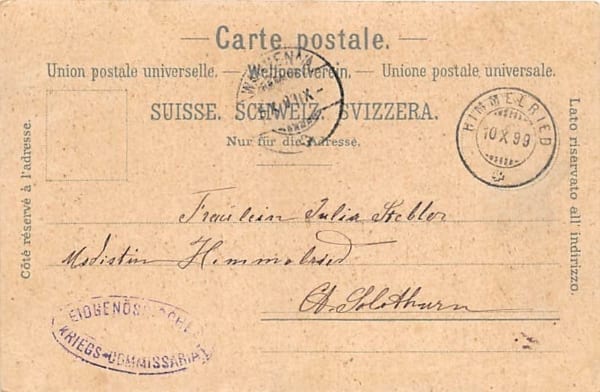 Carte postale.
Union postale universelle. — Weltpostverein. — Unione postale universale.
SUISSE. SCHWEIZ. SVIZZERA.
Nur für die Adresse.
Côté réservé à l'adresse.
Lato riservato all' indirizzo.
HIMMELRIED
10 X 99
Fräulein Julia Stebler
Modistin Himmelried
Ct. Solothurn
EIDGENÖSSISCHES
KRIEGS-COMMISSARIAT